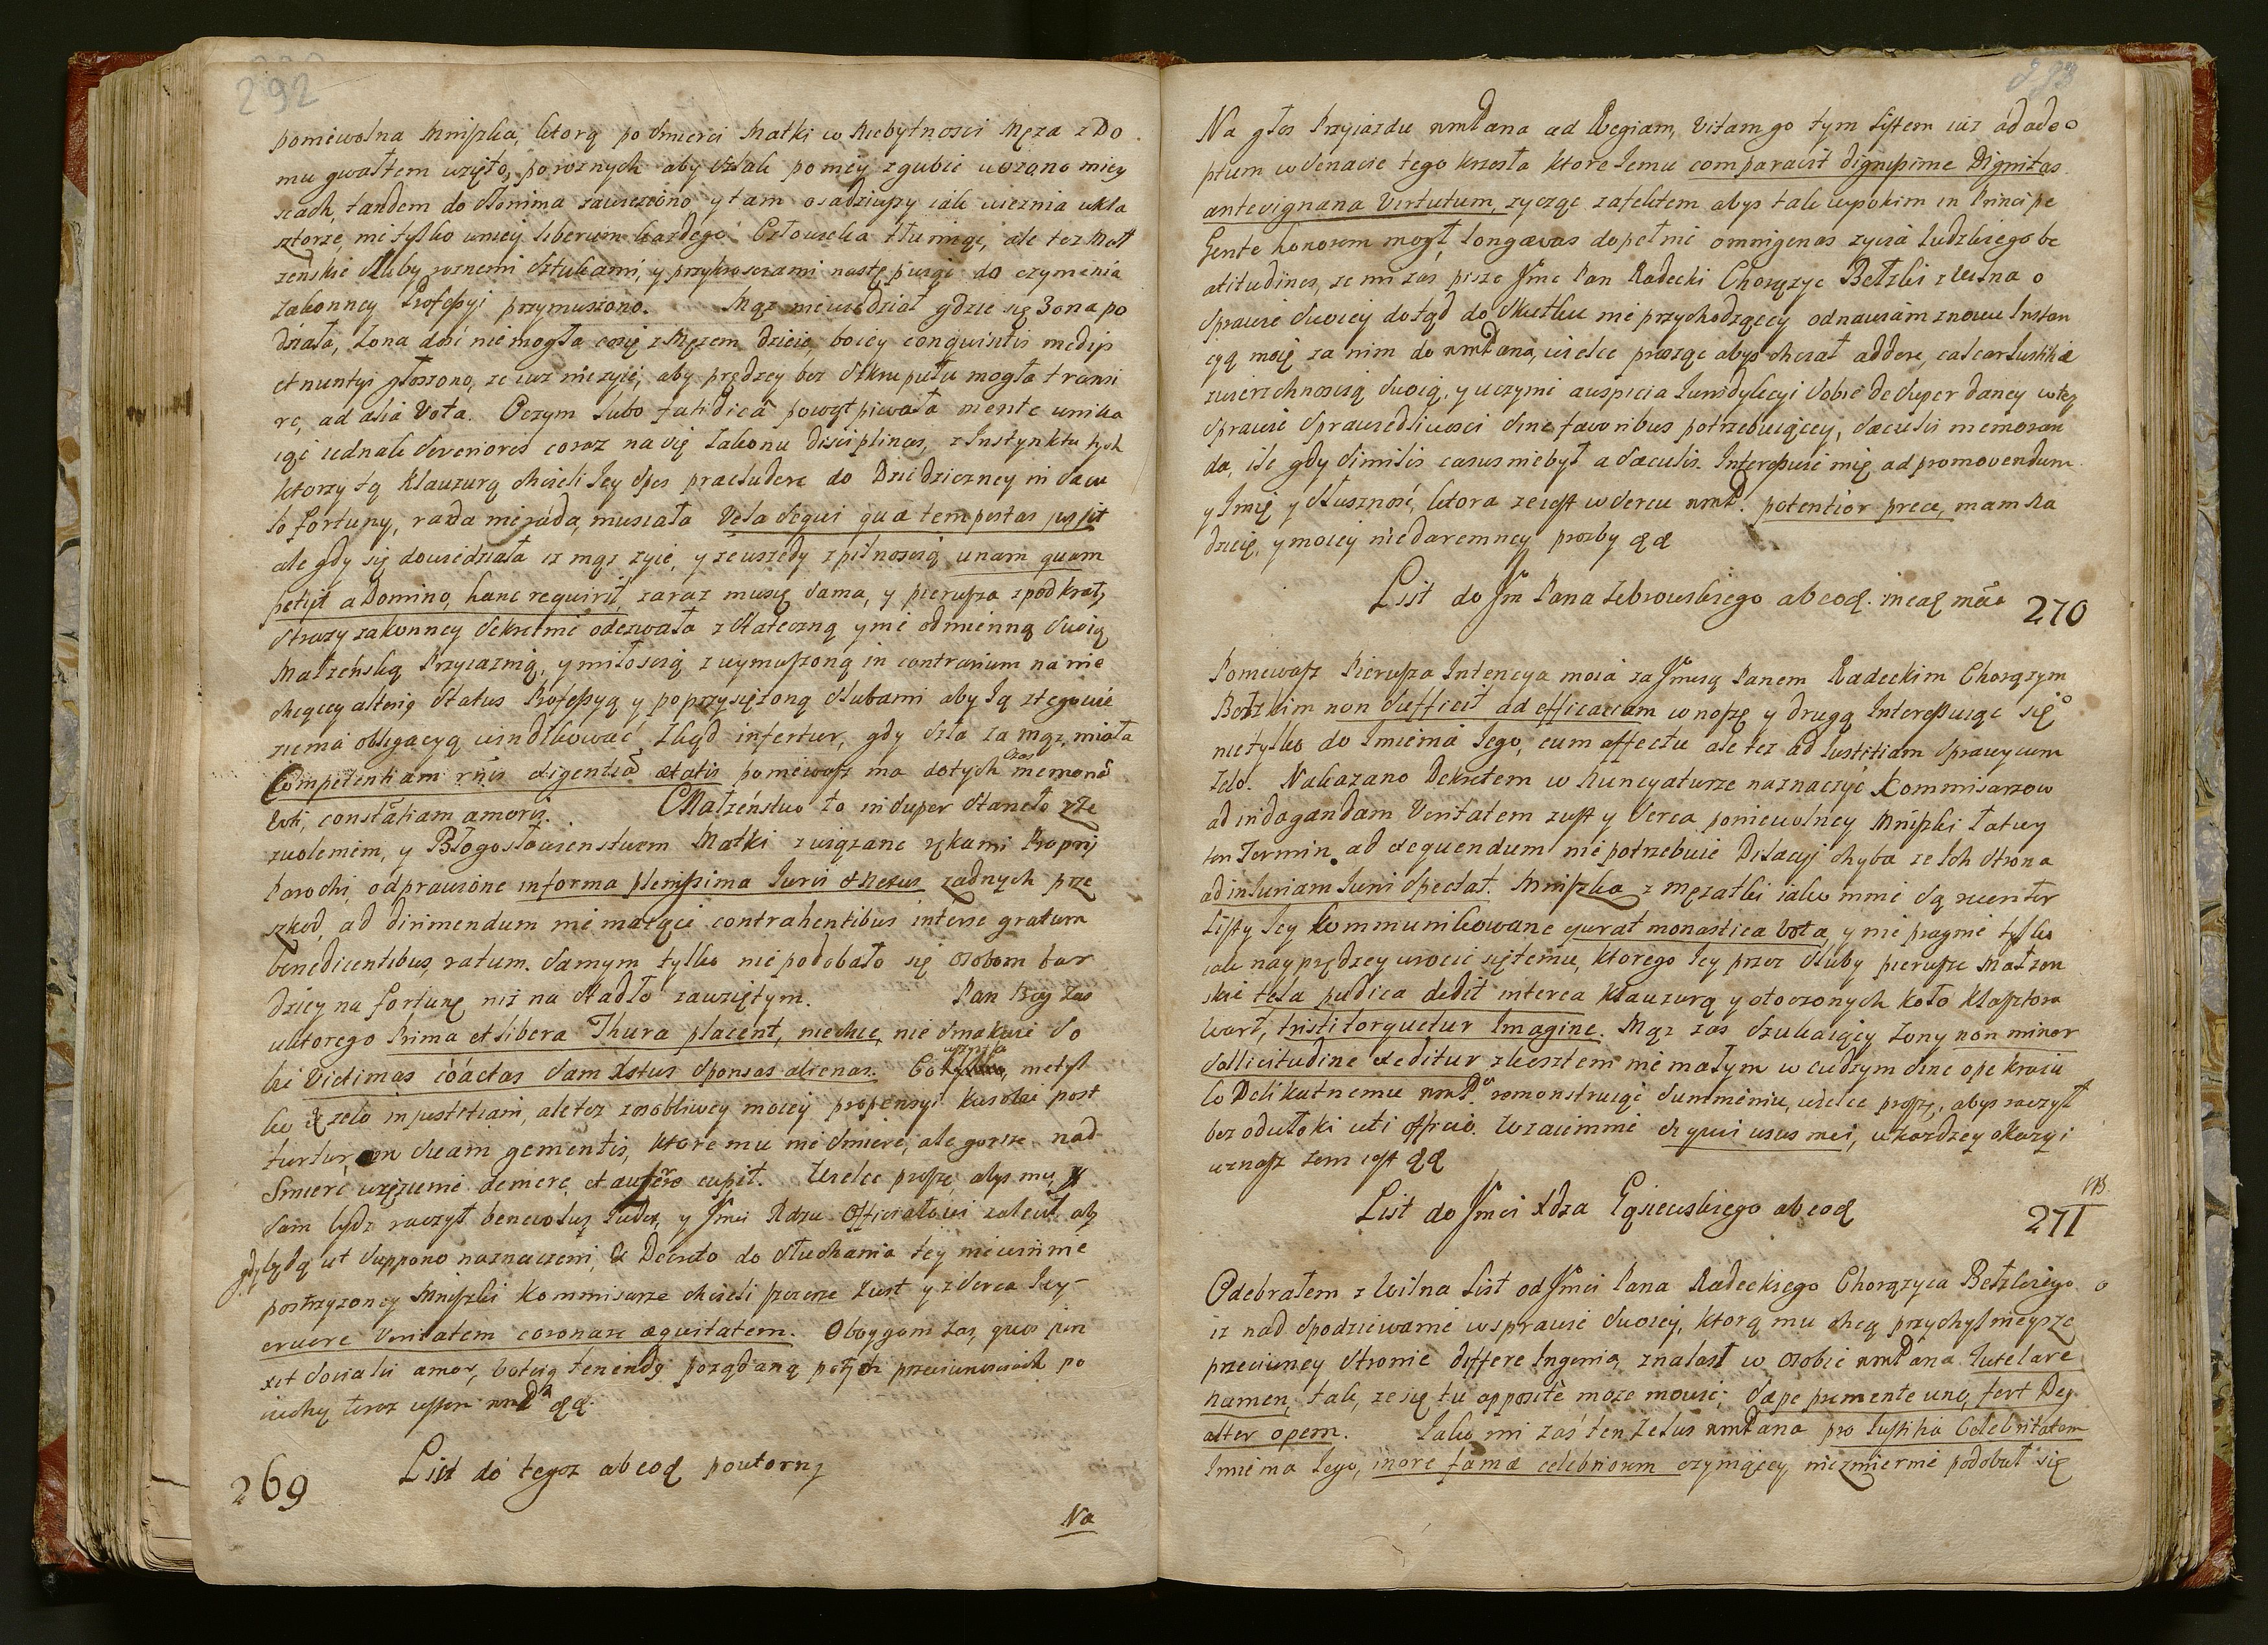 292
poniewolna Mniszka, ktorą po smierci Matki w Niebytnosci Męza z Do
mu gwałtem wzięto, po roznych aby vstali po niey zgubić wozono miey
scach, tandem do Słonima zawieziono y tam osadziwszy iak więznia w kla
sztorze, nie tylko w niey liberum kazdego Człowieka tłumiąc, ale tez Mał
zenskie sluby roznemi sztukami, y przykrosciami następuiąc do czynienia
Zakonney Professyi przymuszono. Mąz nie wiedział gdzie się Zona po
działa, Zona dość nie mogła co się z Męzem dzieie, bo iey conquisitis mediis
et nuntiis głoszono, ze iuz nie zyie, aby prędzey bez skrupułu mogła transi
re, ad alia Vota. O czym lubo fatidicâ powątpiwała mente unika
iąc iednak severiores coraz na się Zakonu disciplinas, z Instynktu tych
ktorzy tą Klauzurą chcieli Jey spes praecludere do Dziedziczney in saecu
lo fortuny, rada nierada, musiała Vela sequi qua tempestas jussit
ale gdy się dowiedziała iz mąz zyie, y ze wszędy z pilnoscią unam quam
petiit a Domino, hanc requirit, zaraz musię sama, y pierwsza z pod kraty
strazy zakonney sekretnie odezwała z stateczną y nie odmienną swoią
Małzeńską Przyiaznią, y miłoscią, z wymuszoną in contrarium na nie
chcącey alteriq status Professyą y poprzysięzoną slubami aby Ją z tego wie
zienia obligacyą windikować Zkąd infertur, gdy szła za mąz, miała
Competentiam exigentiâ aetatis poniewasz ma dotych czas memoriâ
voti, constātiam amoris. Małzeństwo to insuper stanęło z Ze
zwoleniem, y Błogosławienstwem Matki związane rękami Proprij
Parochi, odprawione in forma plenissima Iuris et Nexus zadnych prze
szkod, ad dirimendum nie maiące contrahentibus inter se gratum
benedicentibus ratum. Samym tylko nie podobało się osobom bar
dziey na fortunę niz na stadło zawziętym. Pan Bog Zas
u ktorego Prima et libera Thura placent, niechce, nie smakuie so
bie Victimas cöactas Sam Xstus Sponsas alienas. Co uczynisz, nietyl
ko ex zelo in justitiam, ale tez zosobliwey moiey propensyi ku sobie post
turturem suam gementis, ktoremu nie smierć, ale gorsze nad
Smierć więzienie demere, et auferre cupit. Wielce proszę, abys mu
sam bydz raczył benevolus Iudex, y Jmci Xdzu Officiałowi zalecił aby
gdy będą ut suppono naznaczeni, ex Decreto do słuchania tey niewinnie
postrzyzoney Mniszki Kommisarze chcieli szczerze z ust y z serca Jey
eruere Veritatem coronare aequitatem. Oboygom Zas, quos jun
xit socialis amor, votisq tenendis poządaną po tych przeciwnosciach po
ciechę.
269 List do tegoz ab eodē powtorny
Na

293
Na głos Przyiazdu wmPana ad Regiam, Vitam go tym listem iuz ad ade
ptum w Senacie tego krzesła ktore Jemu comparavit dignissime Dignitas
antesignana Virtutum, zycząc zatektem abys tak wysokim in Principe
Gente honorem mogł, longaevas dopełnic omnigenas zycia ludzkiego be
atitudines, ze mi zas pisze Jmc Pan Radecki Chorązyc Bełzki z Wilna o
Sprawie swoiey dotąd do skutku nie przychodzącey odnawiam znowu Instan
cyą moię za nim do wmPana, wielce prosząc abys chciał addere, calcar Iustitiae
zwierzchnoscią swoią, y uczynić auspicia Iurisdykcyi sobie desuper daney w tey
Sprawie Sprawiedliwosci sine favoribus potrzebuiącey, saeculis memoran
da, ile gdy similis casus nie był a saeculis. Interessuie mię ad promovendum
y Imię y słusznosć, ktora ze iest w sercu wmP. potentior prece, mam na
dzieię, y moiey niedaremney prozby
List do Jm Pana Zebrowskiego ab eod. in ead mâa 270
Poniewasz Pierwsza Intencya moia za Jmscią Panem Radeckim Chorązym
Bełzkim non sufficit ad efficaciam wnoszę y drugą Interessuiąc się
nietylko do Imienia Jego, cum affectu ale tez ad Iustitiam sprawy cum
zelo. Nakazano Dekretem w Nuncyaturze naznaczyć Kommisarzow
ad indagandam Veritatem z ust y serca poniewolney Mniszki Łatwy
ten Termin, ad sequendum nie potrzebuie Dilacyi chyba ze Ich strona
ad iniuriam Iuris spectat. Mniszka z męzatki iako mnie są recenter
Listy Jey kommunikowane gerat monastica vota, y nie pragnie tylko
iak nayprędzey wrocić się temu, ktorego Jey przez sluby pierwsze Małzen
skie tela pudica dedit interea Klauzurą y otoczonych koło klasztora
wart, tristi torquetur Imagine. Mąz zas szukaiący Zony non minor
sollicitudine exeditur z kosztem nie małym w cudzym sine ope kraiu
Co Delikatnemu wmPa remonstruiąc sumnieniu, wielce proszę, abys raczył
bez odwłoki uti officio. Wzaiemnie exquiri usus mei, w kazdzey okazyi
uznasz zem iest
List do Jmci Xdza Gąsiewskiego ab eod NB. 271
Odebrałem z Wilna list od Jmci Pana Radeckiego Chorązyca Bełzkiego
iz nad spodziewanie w sprawie swoiey, ktorą mu chcą przychylnieysze
przeciwney stronie differe Ingenia, znalazł w osobie wmPana tutelare
numen, tak, ze się tu apposite moze mowić; saepe premente uno, fert Deg
alter opem. Jako mi zaś ten Zelus wmPana pro Iustitia Celebritatem
Imienia Jego, more famae celebriorem czyniącey, niezmiernie podobał się